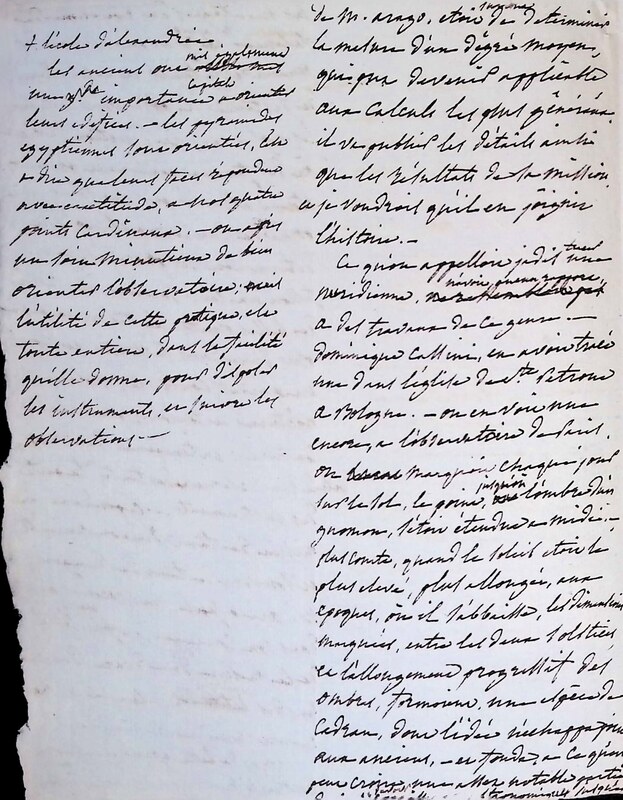 + l'école d'alexandrie
les anciens ont mis également
une importance capitale a orienter
leurs édifices. — les pyramides
egyptiennes sont orientées, c'est
a dire que leurs faces répondent
avec exactitude, a nos quatre
points Cardinaux. — on a pris
un soin minutieux de bien
orienter l'observatoire, mais
l'utilité de cette pratique, est
toute entiere, dans la facilité
qu'elle donne, pour disposer
les instruments, et suivre les
observations —
de M. arago, etoit de determiner
la mesure d'un dégré moyen,
qui put devenir applicable
aux Calculs les plus généraux.
il va publier les détails ainsi
que les résultats de sa mission
et je voudrois qu'il en joignit
l'histoire. —
Ce qu'on appelloit jadis tracer une
meridienne, n'avoit aucun rapport
a des travaux de ce genre. —
dominique Cassini, en avoit tracé
une dans l'église de Ste Petrone
a Bologne. — on en voit une
encore, a l'observatoire de Paris.
on marquoit chaque jour
sur le sol, le point, jusqu'où l'ombre d'un
gnomon, s'étoit étendue a midi. —
plus courte, quand le soleil etoit le
plus elevé, plus allongée, aux
epoques, où il s'abaisse, les dimensions
marquées, entre les deux solstices
et l'allongement progressif des
ombres, formoient, une espèce de
Cadran, dont l'idée n'échappa point
aux anciens, — et fonda, a ce qu'on
peut croire, une assez notable partie